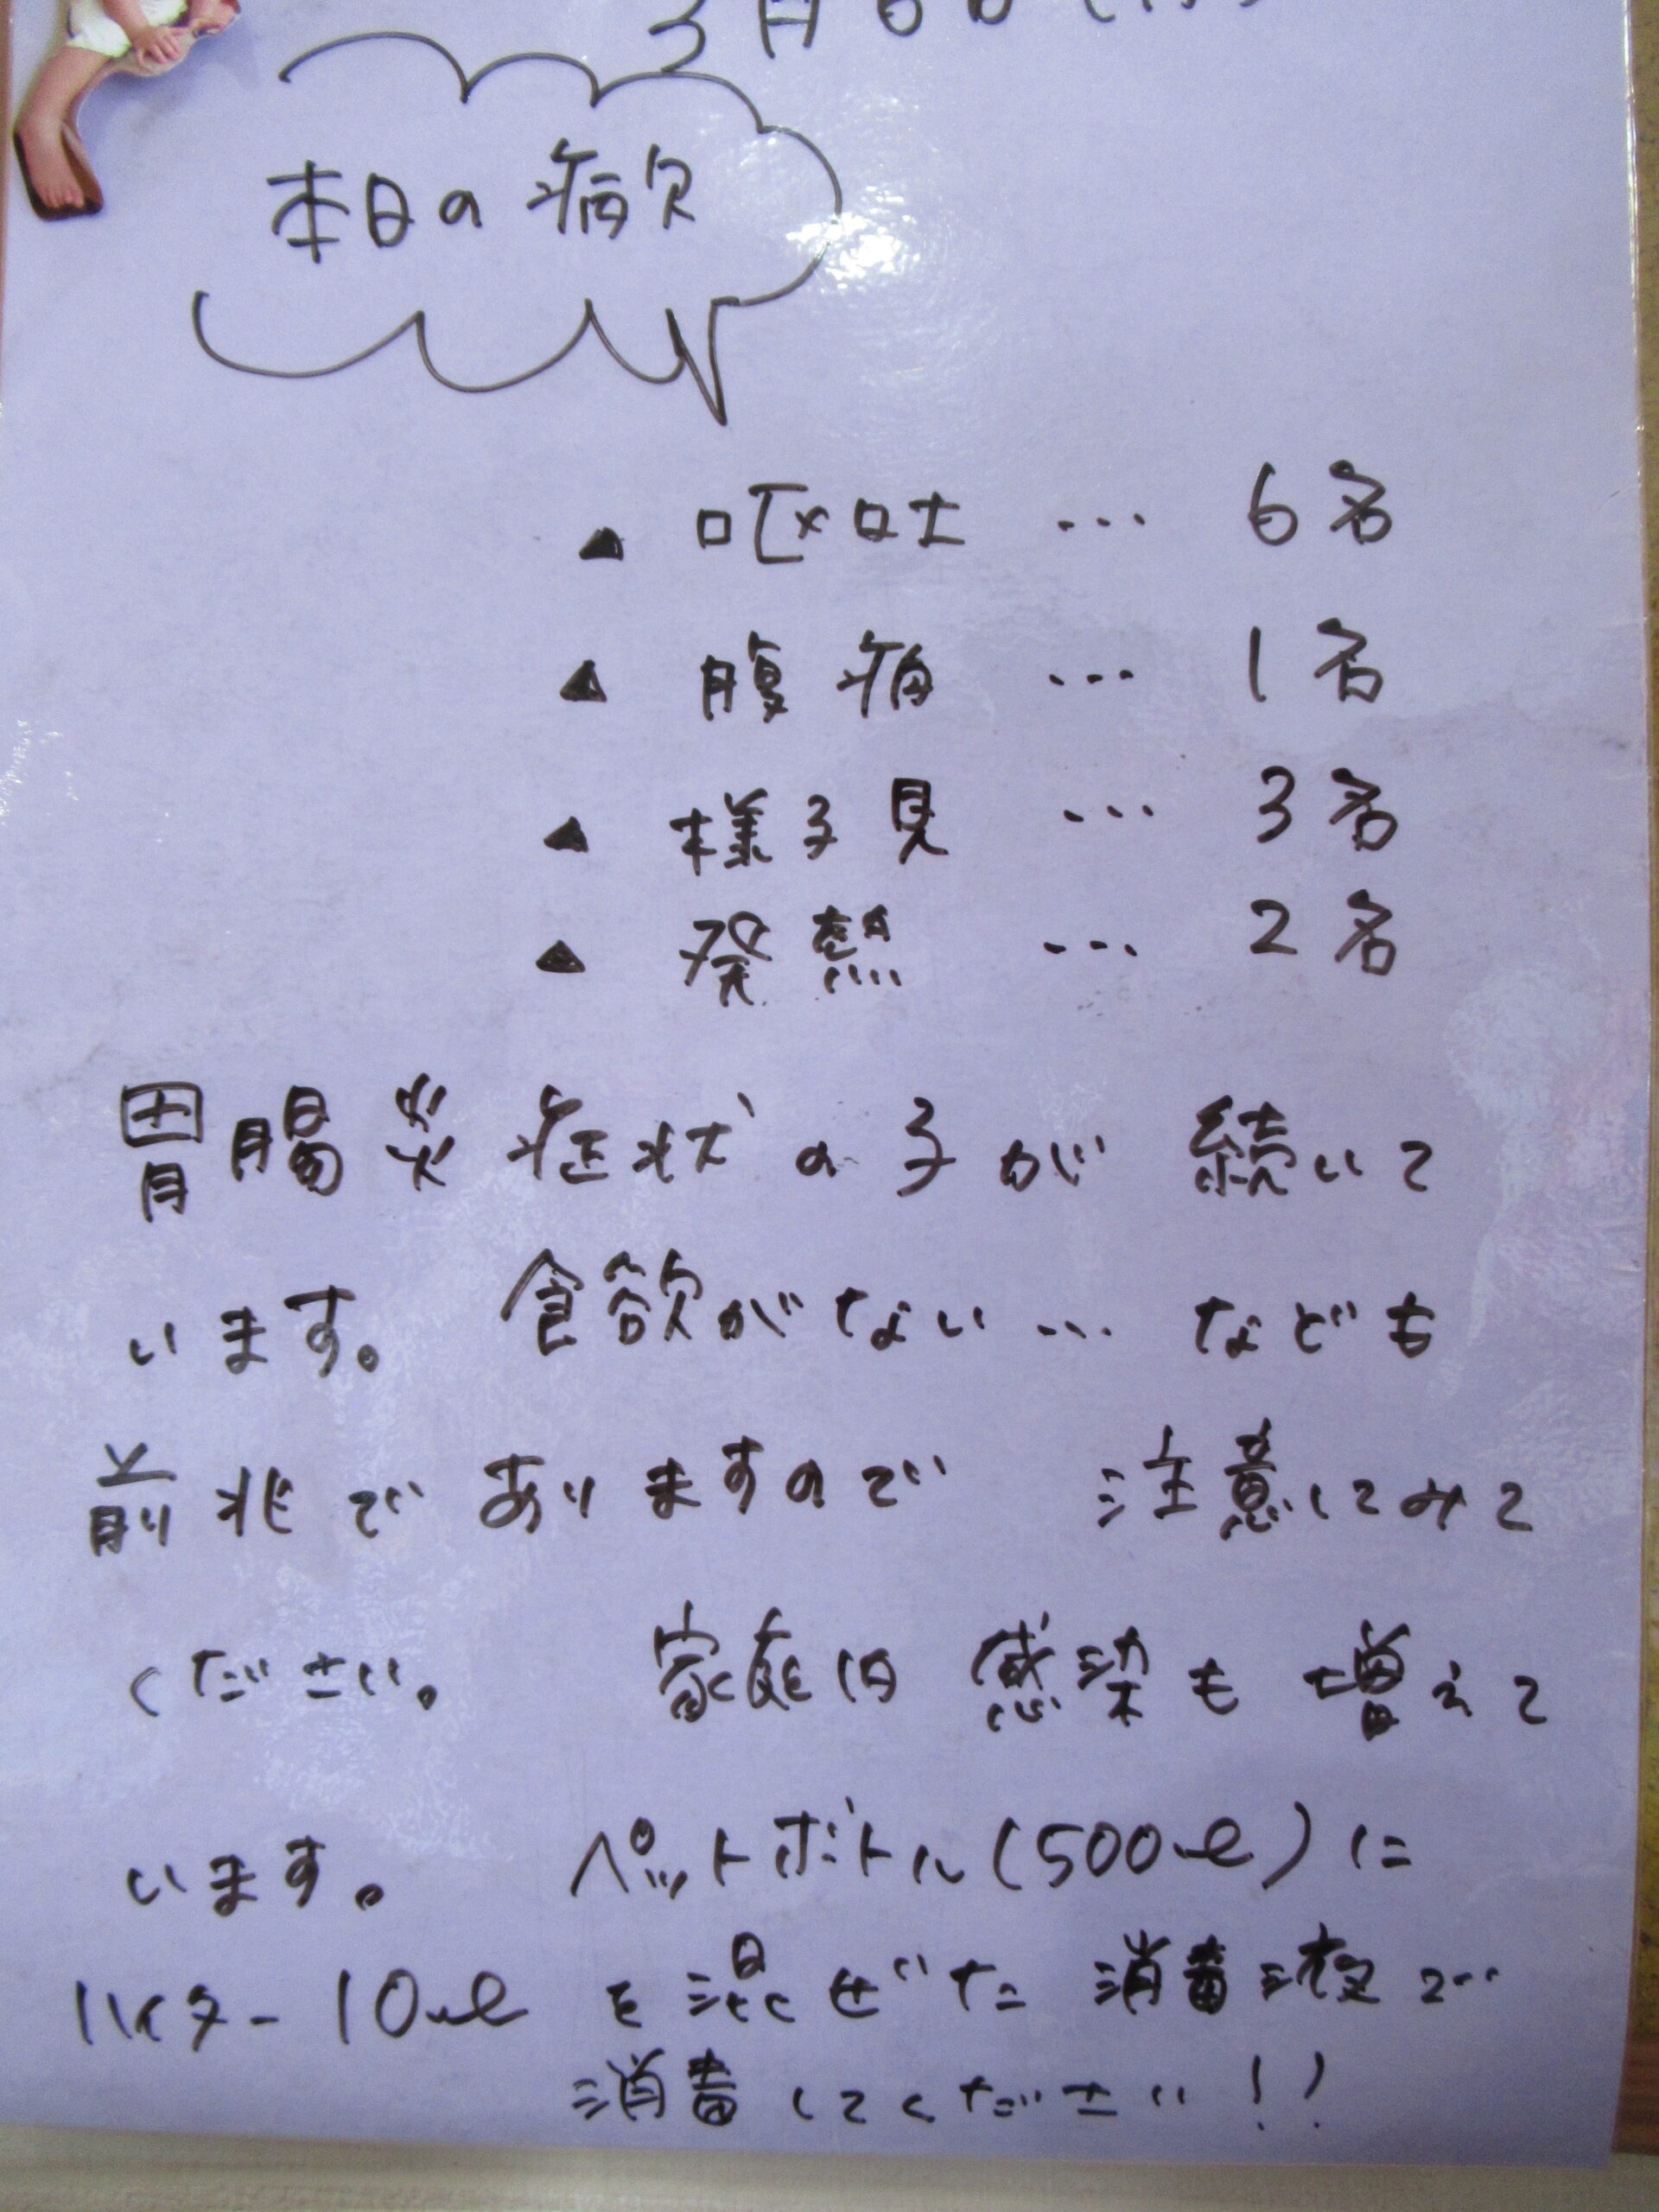 本日の病欠
▲ 嘔吐 … 6名
▲ 腹痛 … 1名
▲ 様子見 … 3名
▲ 発熱 … 2名
胃腸炎症状の子が続いて
います。 食欲がない… なども
前兆でありますので 注意してみて
ください。 家庭内感染も増えて
います。 ペットボトル(500ml)に
ハイター10mlを混ぜた消毒液で
消毒してください!!